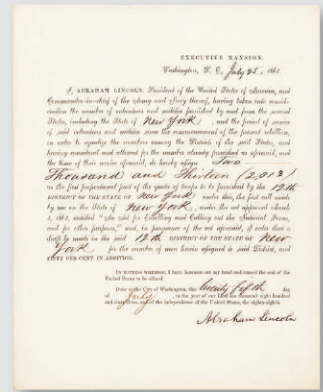 EXECUTIVE MANSION.
Washington, D. C., July 25, 1863.
I, ABRAHAM LINCOLN, President of the United States of America, and
Commander-in-chief of the Army and Navy thereof, having taken into consid-
eration the number of volunteers and militia furnished by and from the several
States, including the State of New York, and the period of service
of said volunteers and militia since the commencement of the present rebellion,
in order to equalize the numbers among the Districts of the said States, and
having considered and allowed for the number already furnished as aforesaid, and
the time of their service aforesaid, do hereby assign Two
Thousand and Thirteen (2,013)
as the first proportional part of the quota of troops to be furnished by the 12th
DISTRICT OF THE STATE OF New York under this, the first call made
by me on the State of New York, under the act approved March
3, 1863, entitled "An Act for Enrolling and Calling out the National Forces,
and for other purposes," and, in pursuance of the act aforesaid, I order that a
draft be made in the said 12th DISTRICT OF THE STATE OF New
York for the number of men herein assigned to said District, and
FIFTY PER CENT IN ADDITION.
IN WITNESS WHEREOF, I have hereunto set my hand and caused the seal of the
United States to be affixed.
Done at the City of Washington, this twenty fifth day
of July, in the year of our Lord one thousand eight hundred
and sixty-three, and of the independence of the United States, the eighty-eighth.
Abraham Lincoln